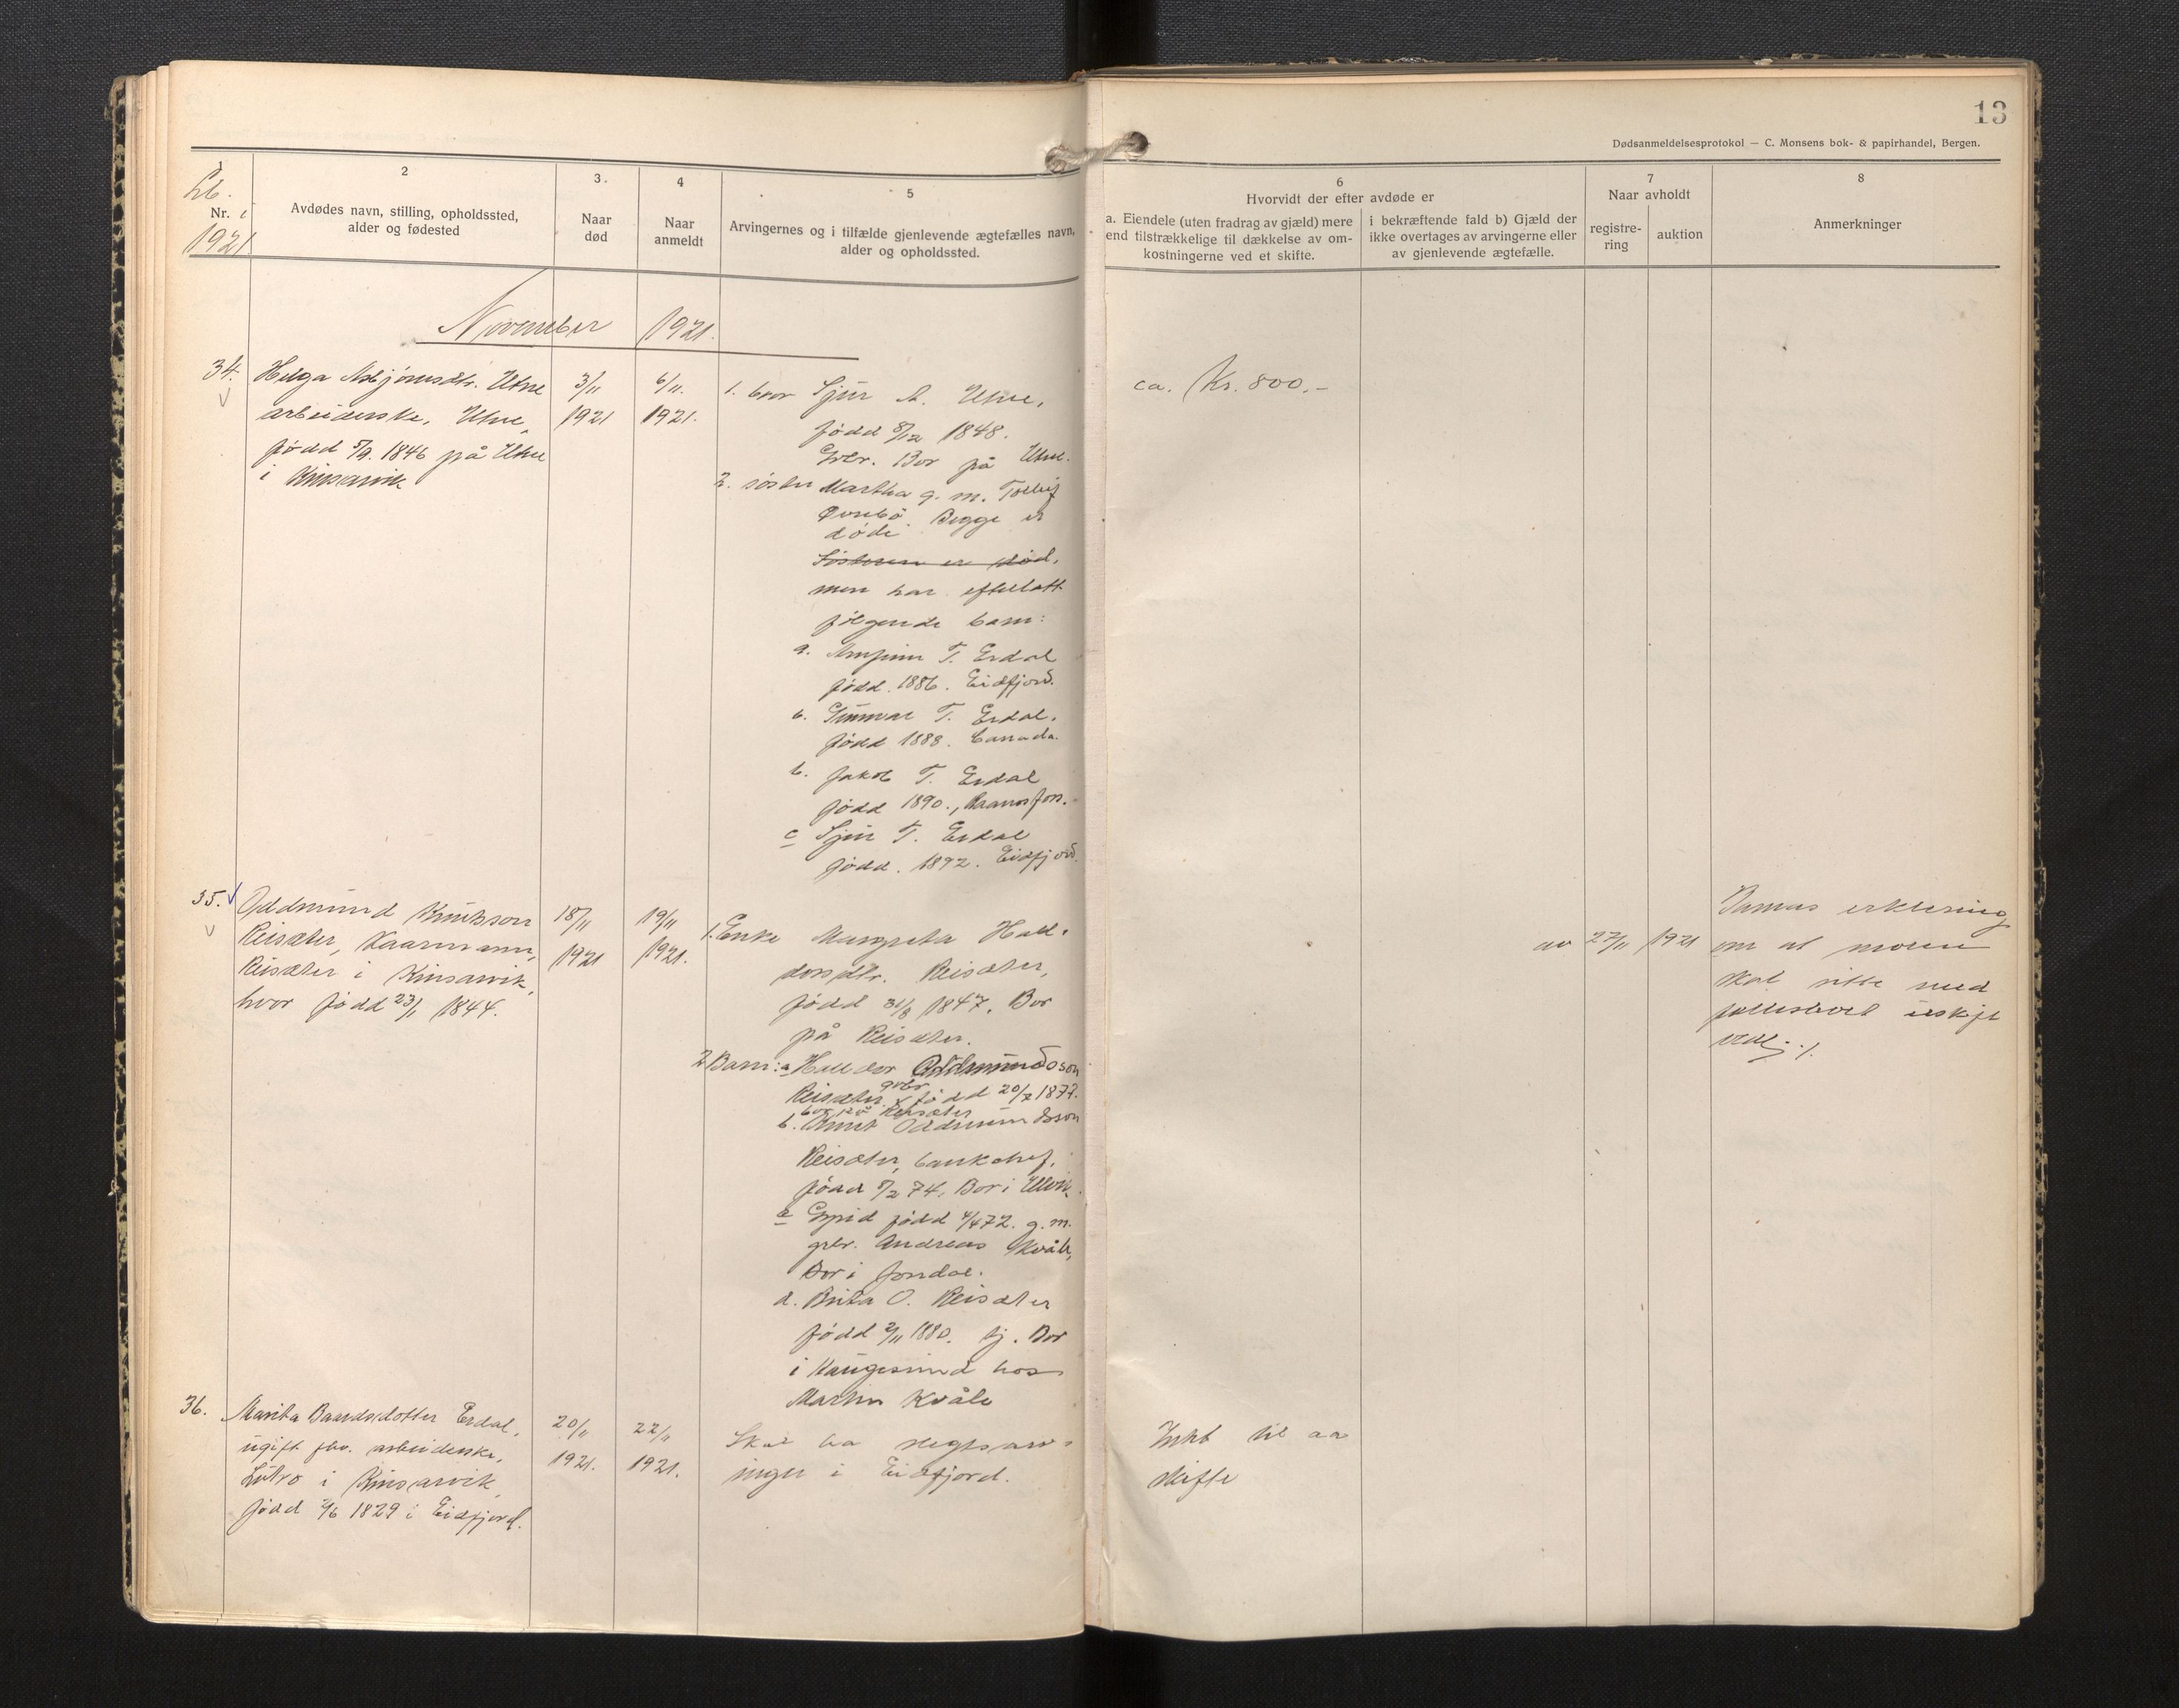 13
Dødsanmeldelsesprotokol — C. Monsens bok- & papirhandel, Bergen.
1
Lb.
Nr. i
1921
2
Avdødes navn, stilling, opholdssted,
alder og fødested
3.
Naar
død
4
Naar
anmeldt
5
Arvingernes og i tilfælde gjenlevende ægtefælles navn,
alder og opholdssted.
6
Hvorvidt der efter avdøde er
a. Eiendele (uten fradrag av gjæld) mere
end tilstrækkelige til dækkelse av om-
kostningerne ved et skifte.
i bekræftende fald b) Gjæld der
ikke overtages av arvingerne eller
av gjenlevende ægtefælle.
7
Naar avholdt
registre-
ring
auktion
8
Anmerkninger
November 1921.
34.
Helga Asbjörnsdtr. Utne
arbeiderske, Utne,
född 5/9 1846 på Utne
i Kinsarvik
3/11
1921
6/11.
1921.
1. bror Sjur A. Utne,
född 8/12 1848.
Gbr. Bor på Utne.
2. söster Martha g. m. Tollef
Øvrebö. Begge er
döde
Sösteren er död,
men har efterlatt
fölgende barn:
a. Arnfinn T. Erdal
född. 1886. Eidfjord.
b. Gunvor T. Erdal.
född 1888. Canada.
b. Jakob T. Erdal
född 1890.,
c Sjur T. Erdal
född. 1892. Eidfjord.
ca. Kr. 800.-
35.
Oddmund Knutsson
Reisæter, Kaarmann,
Reisæter i Kinsarvik,
hvor född 23/1 1844.
18/11
1921
19/11
1921.
1. Enke Margreta Hall-
dorsdtr. Reisæter,
född 31/8 1847. Bor
på Reisæter.
2 Barn: a Halldor Oddmundsson
Reisæter gbr. född 20/7 1877.
bor på Reisæter
b. Knut Oddmundsson
Reisæter, bankchef,
född 5/2 74, Bor i Ulvik.
c född 4/4 72. g. m.
gbr. Andreas Kvåle,
Bor i Jondal.
d. Brita O. Reisæter
född 2/11 1880. tj. Bor
i Haugesund hos
Martin Kvåle
27/11 1921
Barnas erklering
om at moren
skal sitte med
fellesboet uskif
36.
Marita Baardsdotter Erdal,
ugift fhv. arbeiderske,
Lutro i Kinsarvik,
född 2/6 1829 i Eidfjord.
20/11
1921.
22/11
1921.
Skal ha slegtsarv-
inger i Eidfjord.
Inkt til aa
skifte